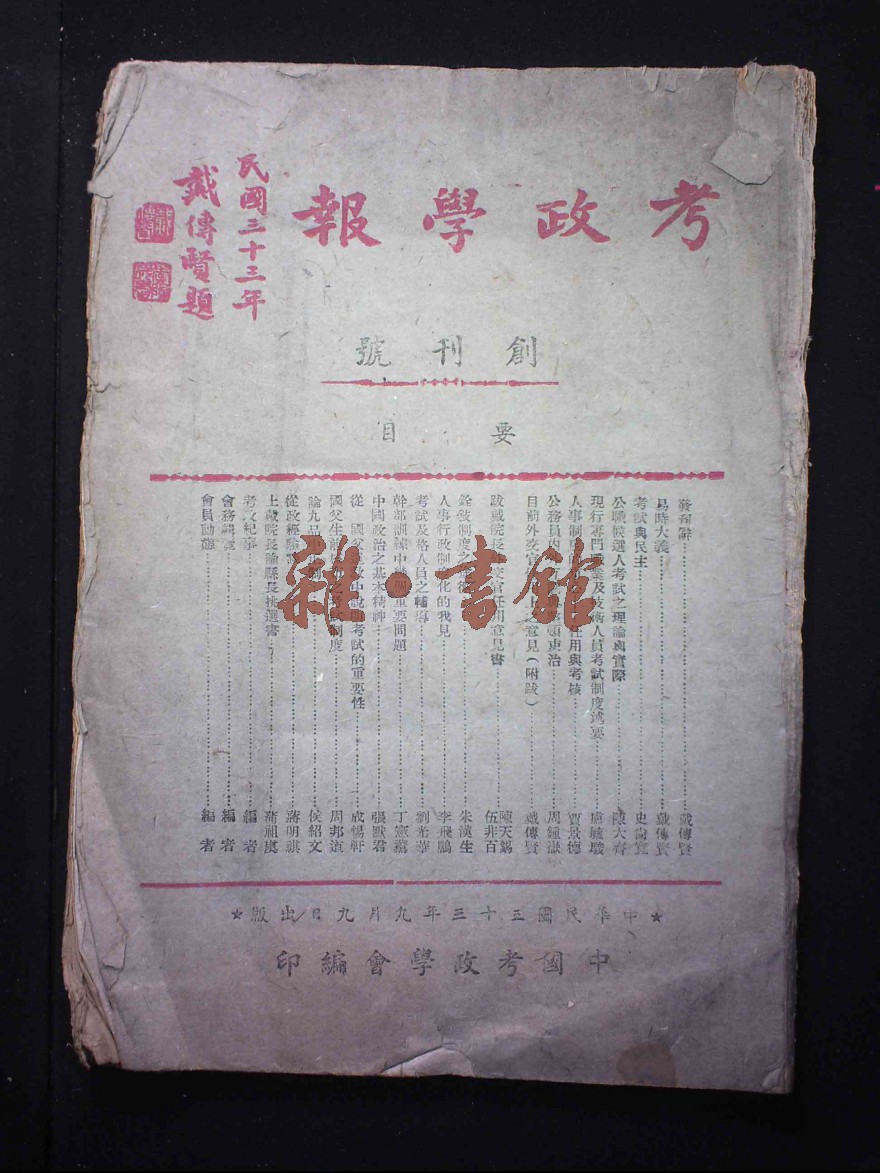 考政學報
民國三十三年
戴傳賢題
創刊號
要目
發刊辭 戴傳賢
易時大義 戴傳賢
考試與民主 史尚寬
公職候選人考試之理論與實際 陳大齊
現行專門職業及技術人員考試制度 盧毓駿
人事制 任用與考核 賈景德
公務員內 吏治 周鍾嶽
目前外交官 上之意見(附跋) 戴傳賢
跋戴院長 交官任用意見書 陳天錫 伍非百
銓敘制度之 朱漢生
人事行政制 化的我見 李飛鵬
考試及格人員之輔導 劉光華
幹部訓練中 個重要問題 丁憲嘉
中國政治之基本精神 張默君
從 國父 中說 考試的重要性 成惕軒
國父生 制度 周邦道
論九品 制 侯紹文
從政經 蔣明祺
上戴院長論縣長挑選書 蕭祖虞
考政紀事 編者
會務 編者
會員動態 編者
★中華民國三十三年九月九日出版★
中國考政學會編印
雜·書館